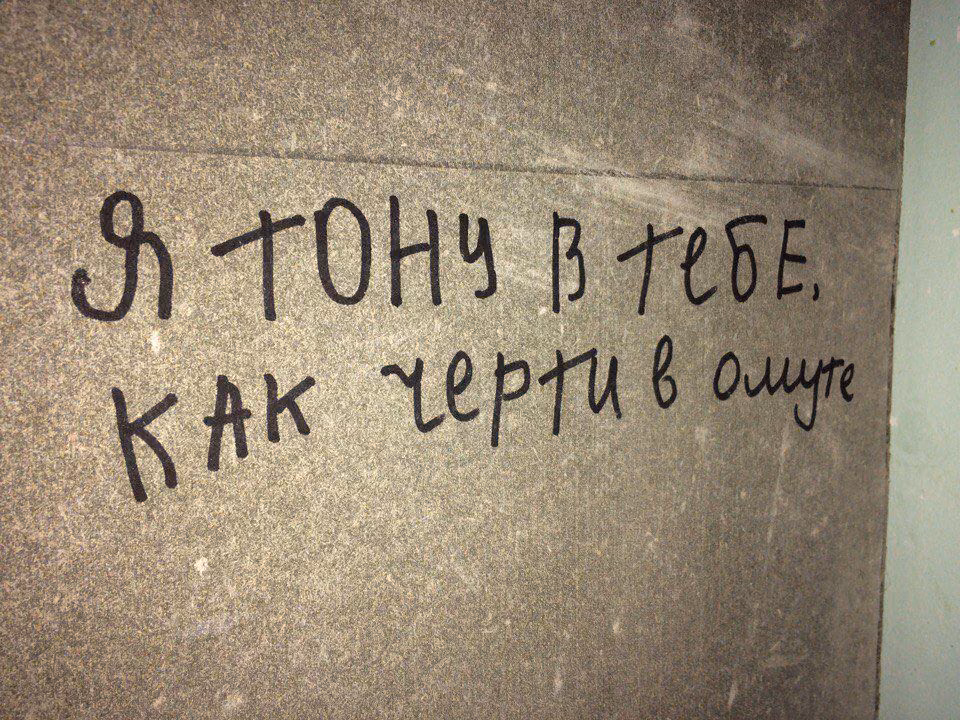 Я тону в тебе,
как черти в омуте